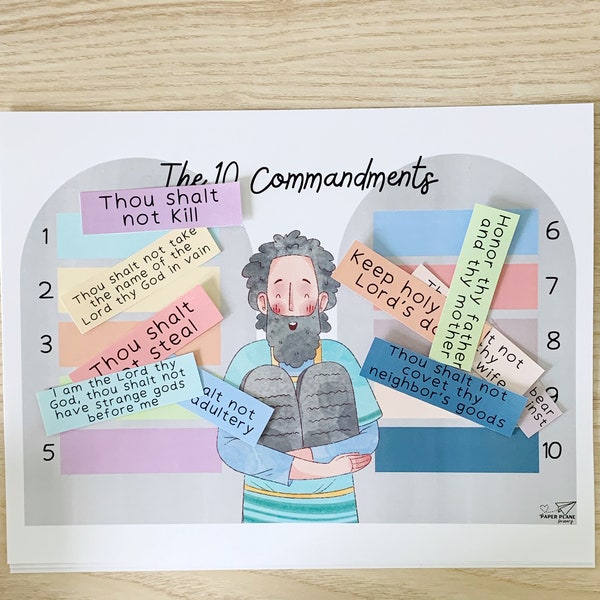 The 10 Commandments
Thou shalt
not Kill
1
Thou shalt not take
the name of the
Lord thy God in vain
2
Thou shalt
steal
3
I am the Lord thy
God, thou shalt not
have strange gods
before me
shalt not
adultery
5
6
Honor thy father
and thy mother
Keep holy
Lord's
7
not
thy
wife
8
bear
Thou shalt not
covet thy
neighbor's goods
10
PAPER PLANE